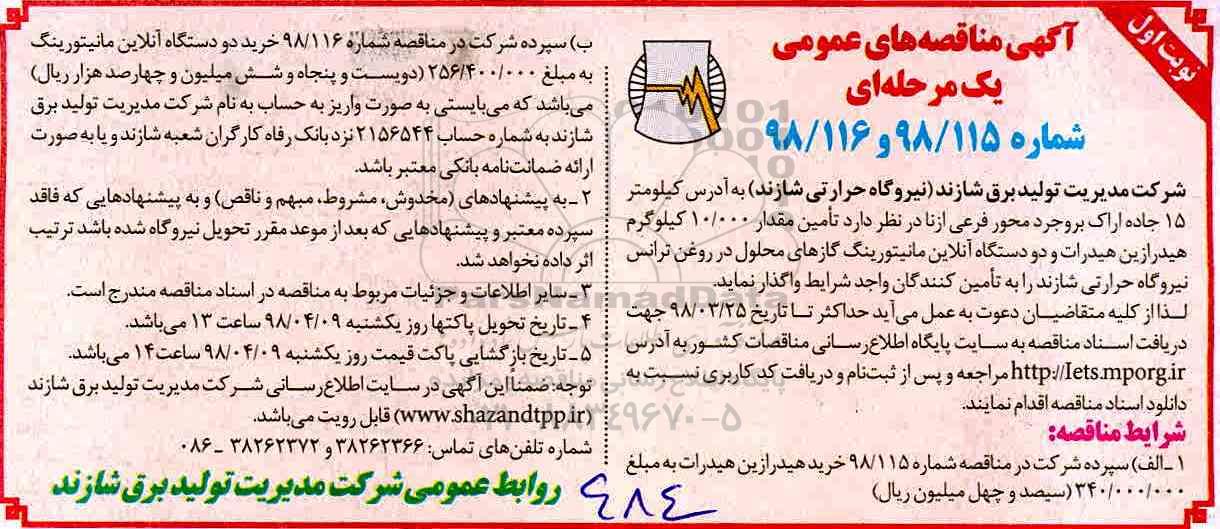 نوبت اول
آگهی مناقصه‌های عمومی
یک مرحله‌ای
شماره ۹۸/۱۱۵ و ۹۸/۱۱۶
شرکت مدیریت تولید برق شازند (نیروگاه حرارتی شازند) به آدرس کیلومتر
۱۵ جاده اراک بروجرد محور فرعی ازنا در نظر دارد تأمین مقدار ۱۰/۰۰۰ کیلوگرم
هیدرازین هیدرات و دو دستگاه آنلاین مانیتورینگ گازهای محلول در روغن ترانس
نیروگاه حرارتی شازند را به تأمین کنندگان واجد شرایط واگذار نماید.
لذا از کلیه متقاضیان دعوت به عمل می‌آید حداکثر تا تاریخ ۹۸/۰۳/۲۵ جهت
دریافت اسناد مناقصه به سایت پایگاه اطلاع‌رسانی مناقصات کشور به آدرس
http://Iets.mporg.ir مراجعه و پس از ثبت‌نام و دریافت کد کاربری نسبت به
دانلود اسناد مناقصه اقدام نمایند.
شرایط مناقصه:
۱ـ الف) سپرده شرکت در مناقصه شماره ۹۸/۱۱۵ خرید هیدرازین هیدرات به مبلغ
۳۴۰/۰۰۰/۰۰۰ (سیصد و چهل میلیون ریال)
ب) سپرده شرکت در مناقصه شماره ۹۸/۱۱۶ خرید دو دستگاه آنلاین مانیتورینگ
به مبلغ ۲۵۶/۴۰۰/۰۰۰ (دویست و پنجاه و شش میلیون و چهارصد هزار ریال)
می‌باشد که می‌بایستی به صورت واریز به حساب به نام شرکت مدیریت تولید برق
شازند به شماره حساب ۲۱۵۶۵۴۴ نزد بانک رفاه کارگران شعبه شازند و یا به صورت
ارائه ضمانت‌نامه بانکی معتبر باشد.
۲ـ به پیشنهادهای (مخدوش، مشروط، مبهم و ناقص) و به پیشنهادهایی که فاقد
سپرده معتبر و پیشنهادهایی که بعد از موعد مقرر تحویل نیروگاه شده باشد ترتیب
اثر داده نخواهد شد.
۳ـ سایر اطلاعات و جزئیات مربوط به مناقصه در اسناد مناقصه مندرج است.
۴ـ تاریخ تحویل پاکتها روز یکشنبه ۹۸/۰۴/۰۹ ساعت ۱۳ می‌باشد.
۵ـ تاریخ بازگشایی پاکت قیمت روز یکشنبه ۹۸/۰۴/۰۹ ساعت ۱۴ می‌باشد.
توجه: ضمناً این آگهی در سایت اطلاع‌رسانی شرکت مدیریت تولید برق شازند
(www.shazandtpp.ir) قابل رویت می‌باشد.
شماره تلفن‌های تماس: ۳۸۲۶۲۳۶۶ و ۳۸۲۶۲۳۷۲ ـ ۰۸۶
روابط عمومی شرکت مدیریت تولید برق شازند
ParsNamadData